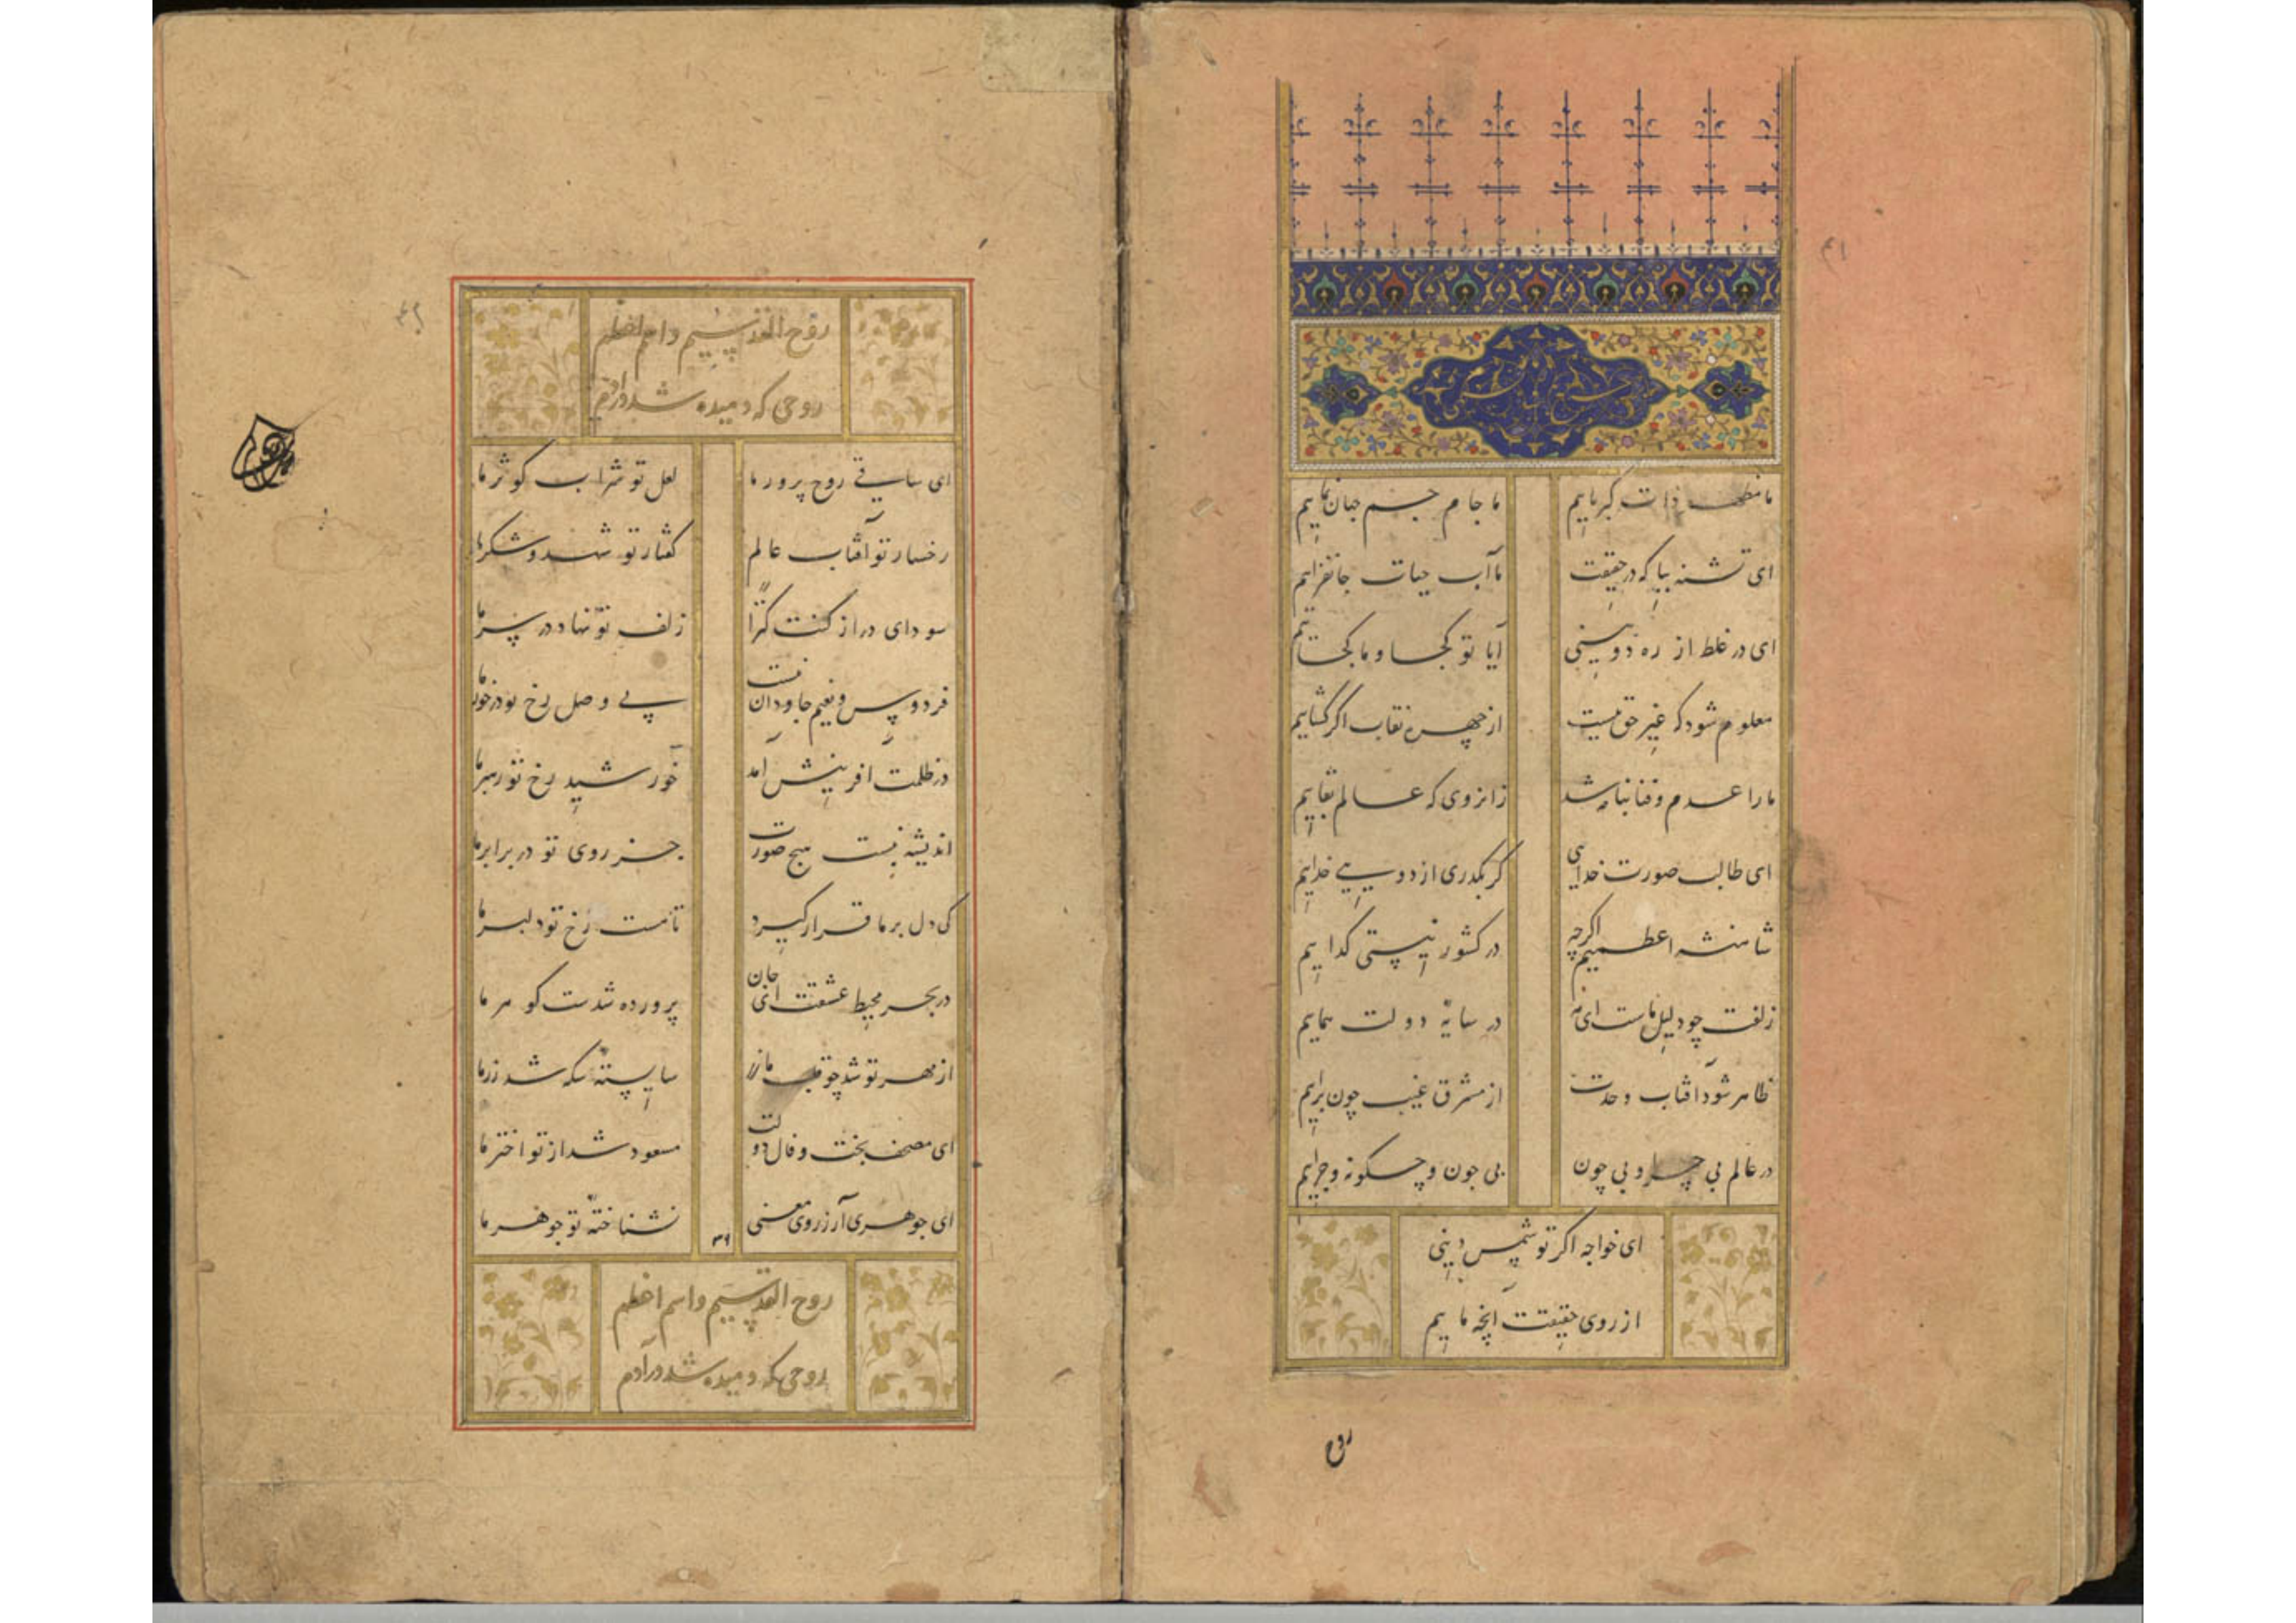 ما مظهر ذات کبریاییم ما جام جم جهان نماییم
ای تشنه بیا که در حقیقت ما آب حیات جانفزاییم
ای در غلط از ره دوبینی آیا تو کجا و ما کجاییم
معلوم شود که غیر حق نیست از چهره نقاب اگر گشاییم
ما را عدم و فنا نباشد زانروی که عالم بقاییم
ای طالب صورت خدایی گر بگذری از دویی خداییم
شاهنشه اعظمیم اگرچه در کشور نیستی گداییم
زلفت چو دلیل ماست ای مه در سایهٔ دولت هماییم
ظاهر شود آفتاب وحدت از مشرق غیب چون برآییم
در عالم بی چرا و بی چون بی چون و چگونه و چراییم
ای خواجه اگر تو شمس دینی
از روی حقیقت آنچه ماییم
روح
روح القدسیم و اسم اعظم
روحی که دمیده شد در آدم
ای ساقی روح پرور ما لعل تو شراب کوثر ما
رخسار تو آفتاب عالم گفتار تو شهد و شکر ما
سودای دراز کنت کنزا زلف تو نهاد در سر ما
فردوس و نعیم جاودان نیست بی وصل رخ تو در خور ما
در ظلمت آفرینش آمد خورشید رخ تو رهبر ما
اندیشه نبست هیچ صورت جز روی تو در برابر ما
کی دل بر ما قرار گیرد تا هست رخ تو دلبر ما
در بحر محیط عشقت ای جان پرورده شدست گوهر ما
از مهر تو شد چو قلب ما زر شایستهٔ سکه شد زر ما
ای مصحف بخت و فال دولت مسعود شد از تو اختر ما
ای جوهری آر ز روی معنی نشناختهٔ تو جوهر ما
روح القدسیم و اسم اعظم
روحی که دمیده شد در آدم